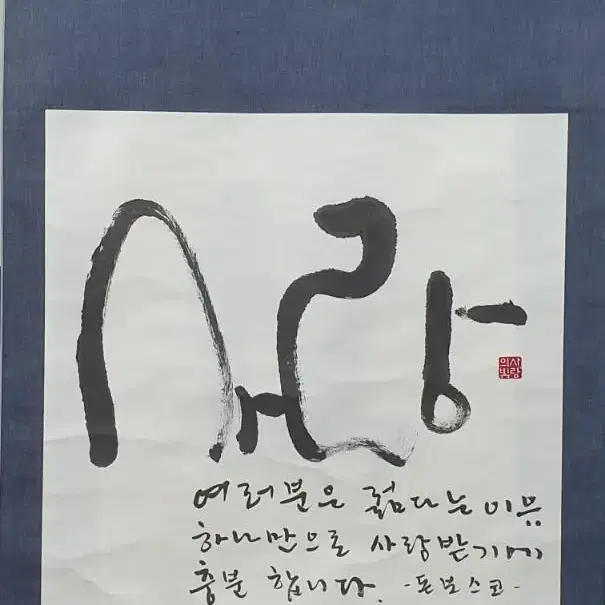 사랑
여러분은 젊다는 이유
하나만으로 사랑받기에
충분 합니다. -돈보스코-